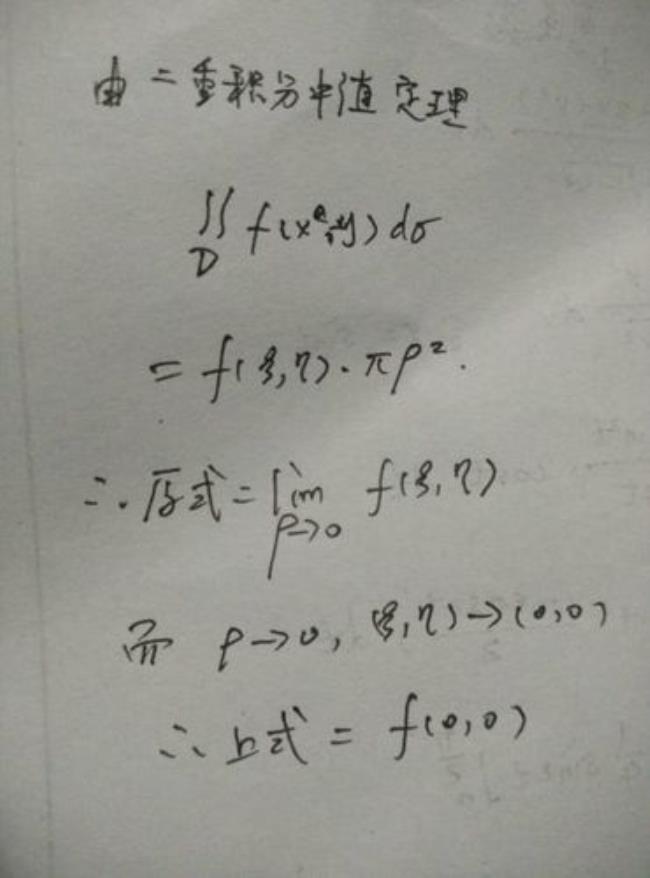 由二重积分中值定理
∬ f(x,y)dσ
D
= f(ξ,η)·πρ².
∴原式=lim f(ξ,η)
ρ→0
而 ρ→0, (ξ,η)→(0,0)
∴上式 = f(0,0)